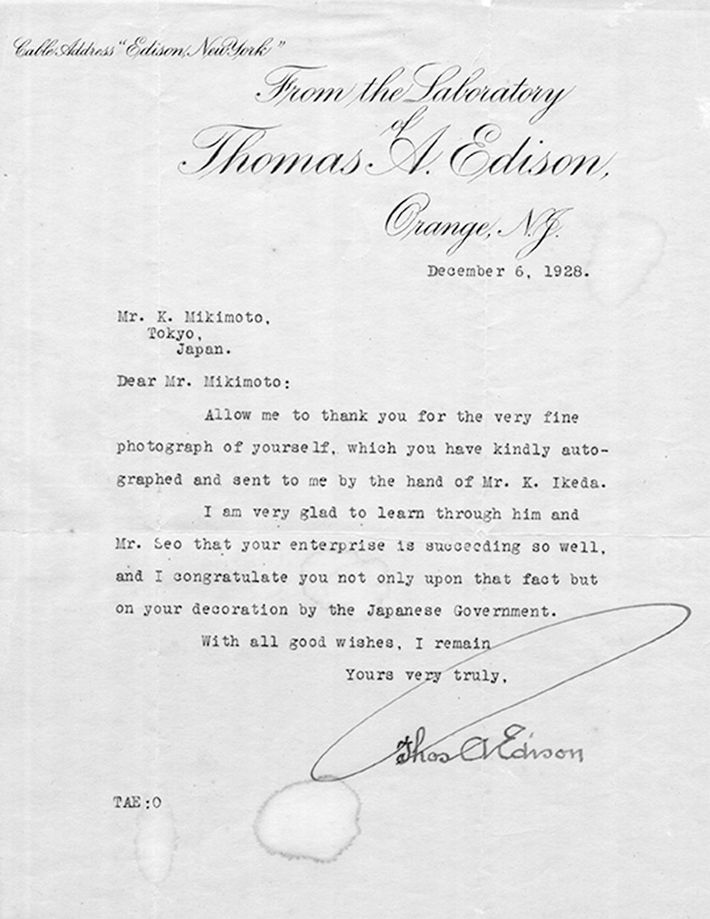 Cable Address "Edison, New York"
From the Laboratory
of
Thomas A. Edison,
Orange, N.J.
December 6, 1928.
Mr. K. Mikimoto,
Tokyo,
Japan.
Dear Mr. Mikimoto:
Allow me to thank you for the very fine
photograph of yourself, which you have kindly auto-
graphed and sent to me by the hand of Mr. K. Ikeda.
I am very glad to learn through him and
Mr. Seo that your enterprise is succeeding so well,
and I congratulate you not only upon that fact but
on your decoration by the Japanese Government.
With all good wishes, I remain
Yours very truly,
Thos A Edison
TAE:O